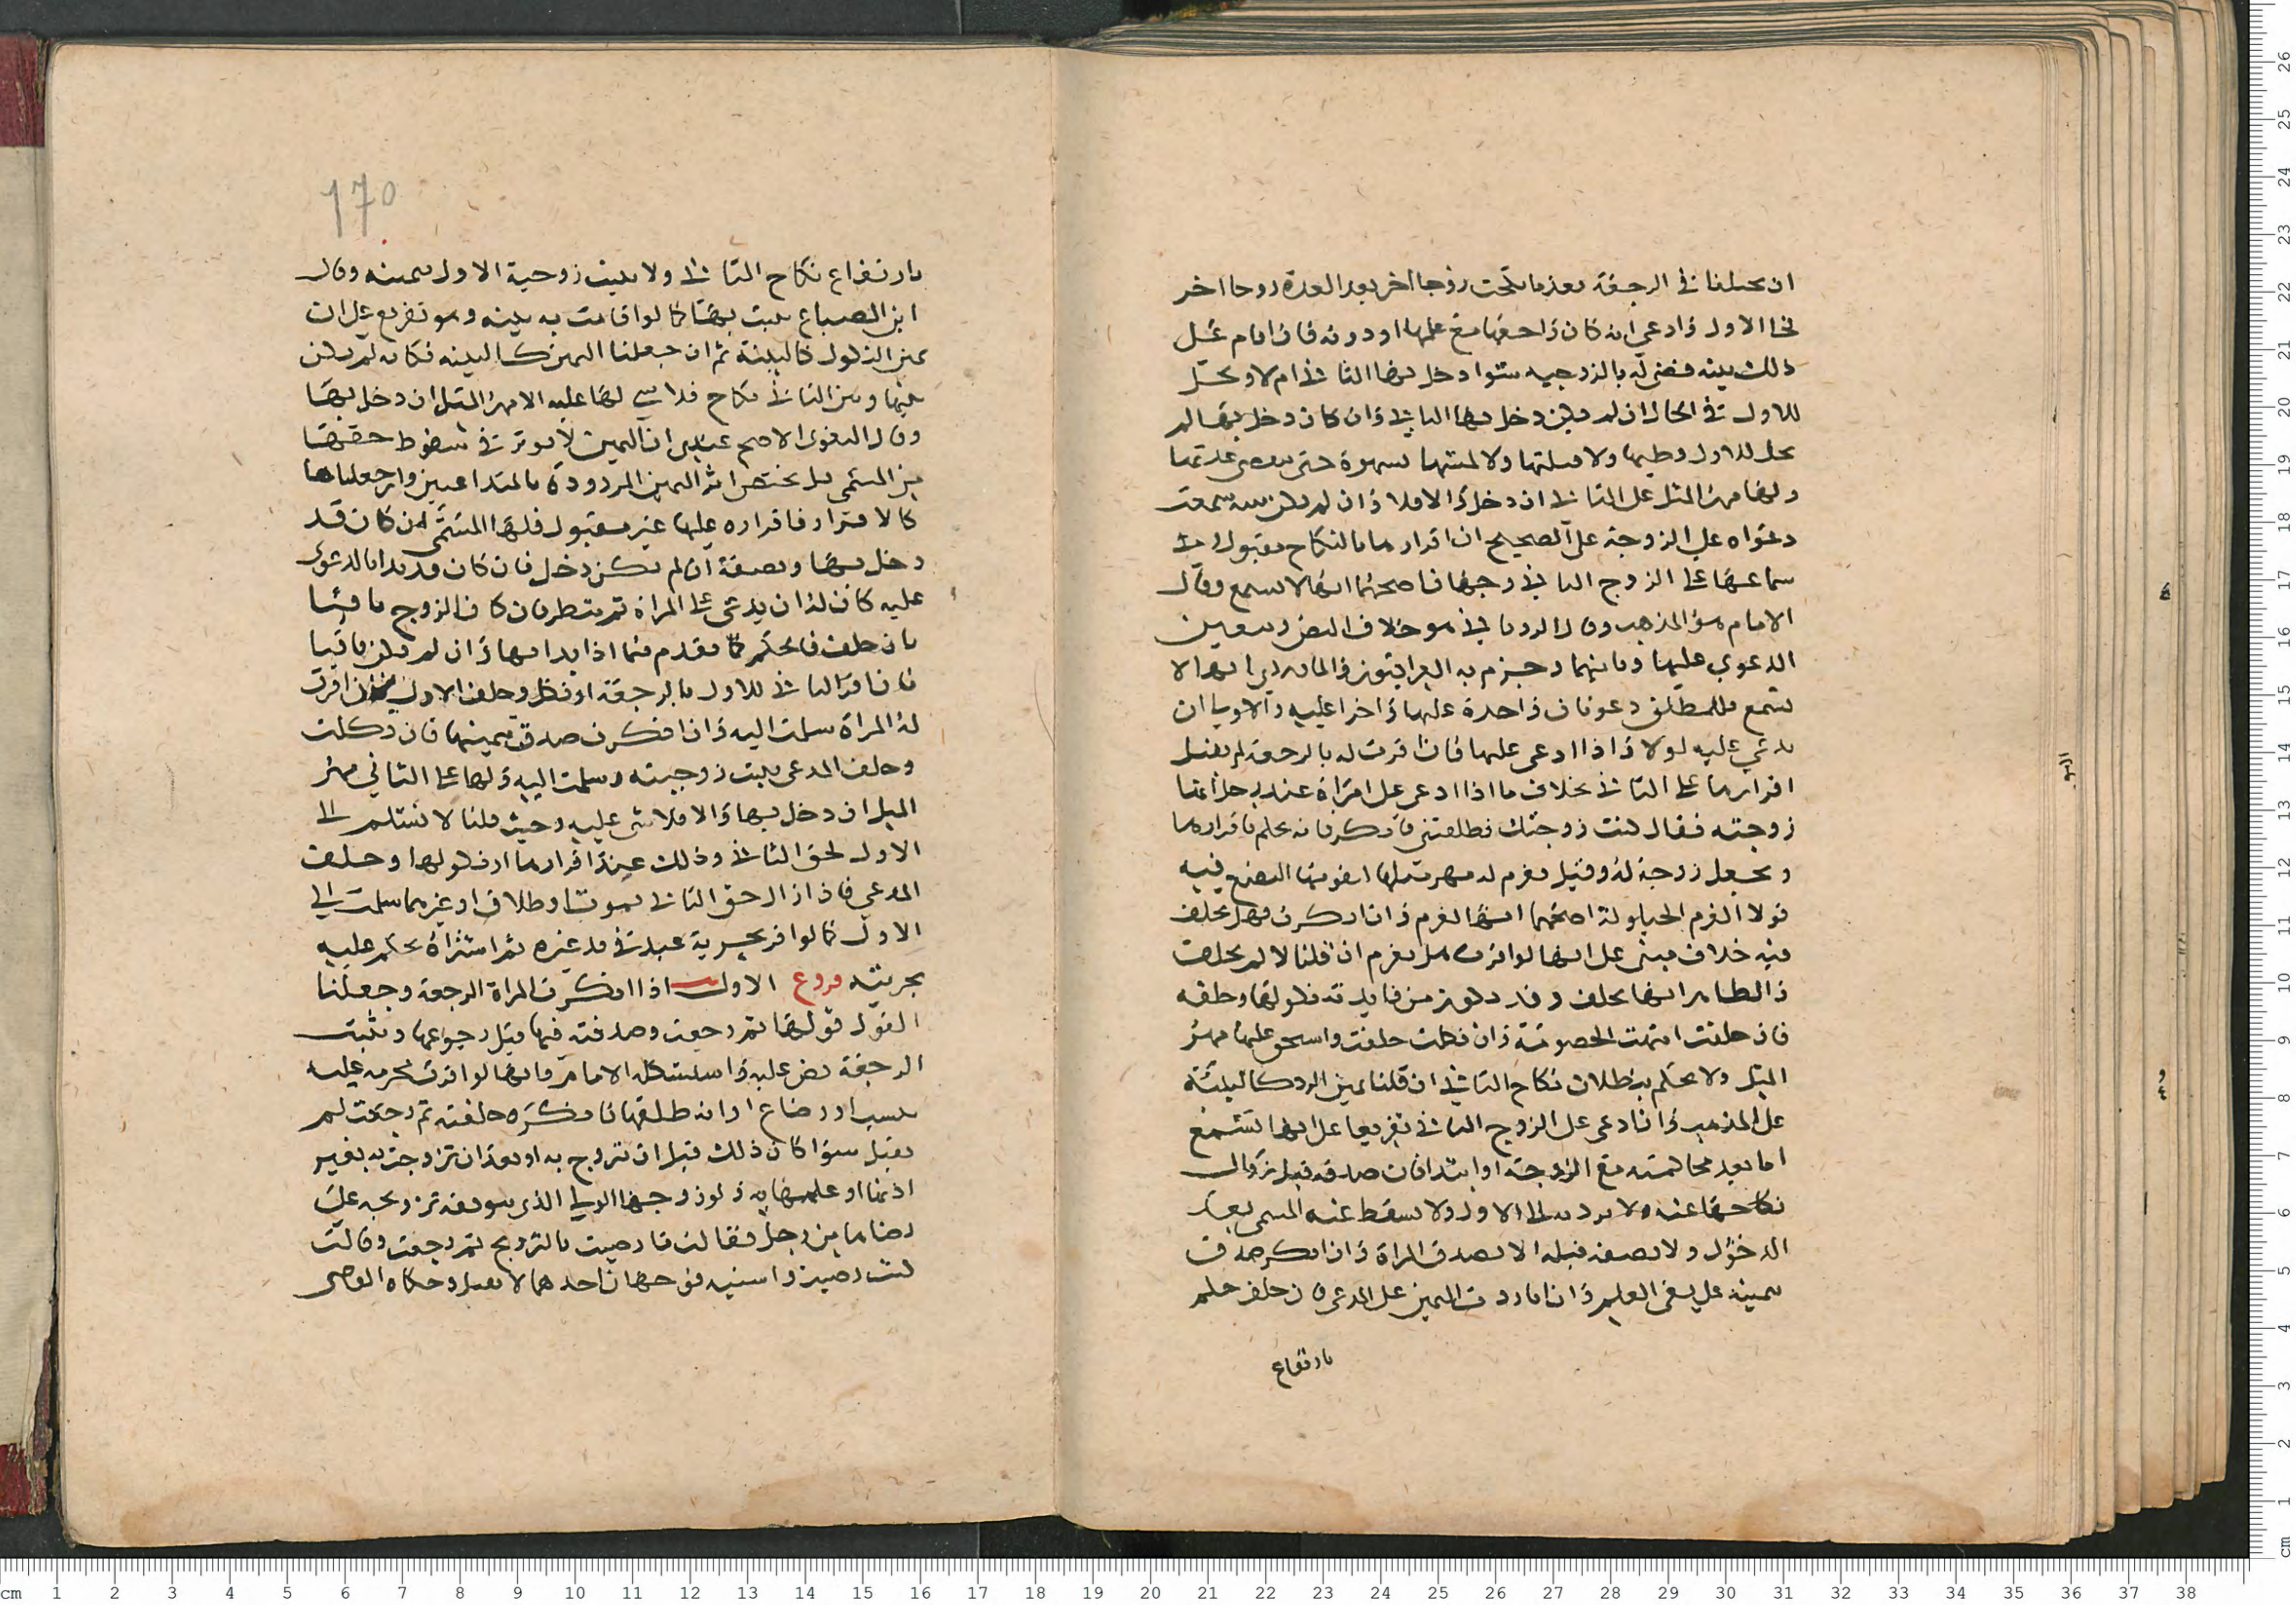 ان يختلفا في الرجعة بعد ما نكحت زوجا اخر بعد العدة زوجا اخر
فجا الاول وادعى انه كان راجعها مع علمها او دونه فان اقام على
ذلك بينة فهي له بالزوجيه سوا دخل بها الثاني ام لا وتحل
للاول في الحال ان لم يكن دخل بها الثاني وان كان دخل بها لم
يحل للاول وطيها ولا قبلتها ولا لمسها بشهوة حتى تنقضي عدتها
ولها مهر المثل على الثاني ان دخل والا فلا وان لم يكن بينة سمعت
دعواه على الزوجة على الصحيح ان اقرارها بالنكاح مقبول وفي
سماعها على الزوج الثاني وجهان اصحهما انها لا تسمع وقال
الامام هو المذهب وقال الروياني هو خلاف النص وتتعين
الدعوى عليها وثانيهما وجزم به العراقيون والماوردي انها لا
تسمع فللمطلق دعوتان واحدة عليها واخرى عليه والاولى ان
يدعي عليه اولا واذا ادعى عليها فان اقرت له بالرجعة لم يقبل
اقرارها على الثاني بخلاف ما اذا ادعى على امراة عند رجل انها
زوجته فقال كنت زوجتك فطلقتني فانكر فانه يحكم باقرارها
وتجعل زوجة له وقيل تغرم له مهر مثلها لتفويتها البضع فيه
قولا الغرم الحيلولة اصحهما انها تغرم وان انكرت فهل تحلف
فيه خلاف مبني على انها لو اقرت هل تغرم ان قلنا لا لم تحلف
والظاهر انها تحلف وقد يكون من فايدته نكولها وحلفه
فان حلفت انتهت الخصومة وان نكلت حلفت واستحق عليها مهر
المثل ولا يحكم ببطلان نكاح الثاني ان قلنا يمين الرد كالبينة
على المذهب وان ادعى على الزوج الثاني تفريعا على انها تسمع
اما بعد مخاصمته مع الزوجة او ابتدا فان صدقه قبل زوال
نكاحها عنه ولا يرد به الى الاول ولا يسقط عنه المسمى بعد
الدخول ولا نصفه قبله الا بصدق المراة وان انكر صدق
بيمينه على نفي العلم وان ردت اليمين على المدعي فان حلف حكم
بارتفاع
170
بارتفاع نكاح الثاني ولا يثبت زوجية الاول بيمينه وقال
ابن الصباغ يثبت بها كما لو اقامت به بينه وهو تفريع على ان
يمين النكول كالبينة ثم ان جعلنا اليمين كالبينه فكانه لم يكن
بينها وبين الثاني نكاح فلا شي لها عليه الا مهر المثل ان دخل بها
وقال البغوي الاصح عندي ان اليمين لا يوثر في سقوط حقها
من المسمى بل يختص اثر اليمين المردودة بالمتداعيين وان جعلناها
كالاقرار فاقراره عليها غير مقبول فلها المسمى ان كان قد
دخل بها ونصفه ان لم يكن دخل فان كان قد بدا بالدعوى
عليه كان له ان يدعي على المراة ثم ينظر فان كان الزوج باقيا
بان حلف فالحكم كما تقدم فيما اذا بدا بها وان لم يكن باقيا
فان اقر الثاني للاول بالرجعة او نكل وحلف الاول فان اقرت
له المراة سلمت اليه وان انكرت صدقت بيمينها فان نكلت
وحلف المدعي يثبت زوجيته وسلمت اليه ولها على الثاني مهر
المثل ان دخل بها والا فلا شي عليه وحيث قلنا لا تسلم الى
الاول لحق الثاني وذلك عند اقرارها او نكولها وحلف
المدعي فان زال حق الثاني بموت او طلاق او غيرهما سلمت الى
الاول كما لو اقر بحرية عبد في يد غيره ثم اشتراه يحكم عليه
بحريته فروع الاول اذا انكرت المراة الرجعة وجعلنا
القول قولها ثم رجعت وصدقته فيها قبل رجوعها وتثبت
الرجعة نص عليه واستشكله الامام فانها لو اقرت بحرمه عليه
بنسب او رضاع او انه طلقها فانكره حلفته ثم رجعت لم
تقبل سوا كان ذلك قبل ان تتزوج به او بعد ان تزوجت به بغير
اذنها او علمها به ولو زوجها الولي الذي يتوقف تزويجه على
رضاها من رجل فقالت ما رضيت بالتزويج ثم رجعت وقالت
كنت رضيت وانسيته فوجهان احدهما لا يقبل وحكاه القاضي